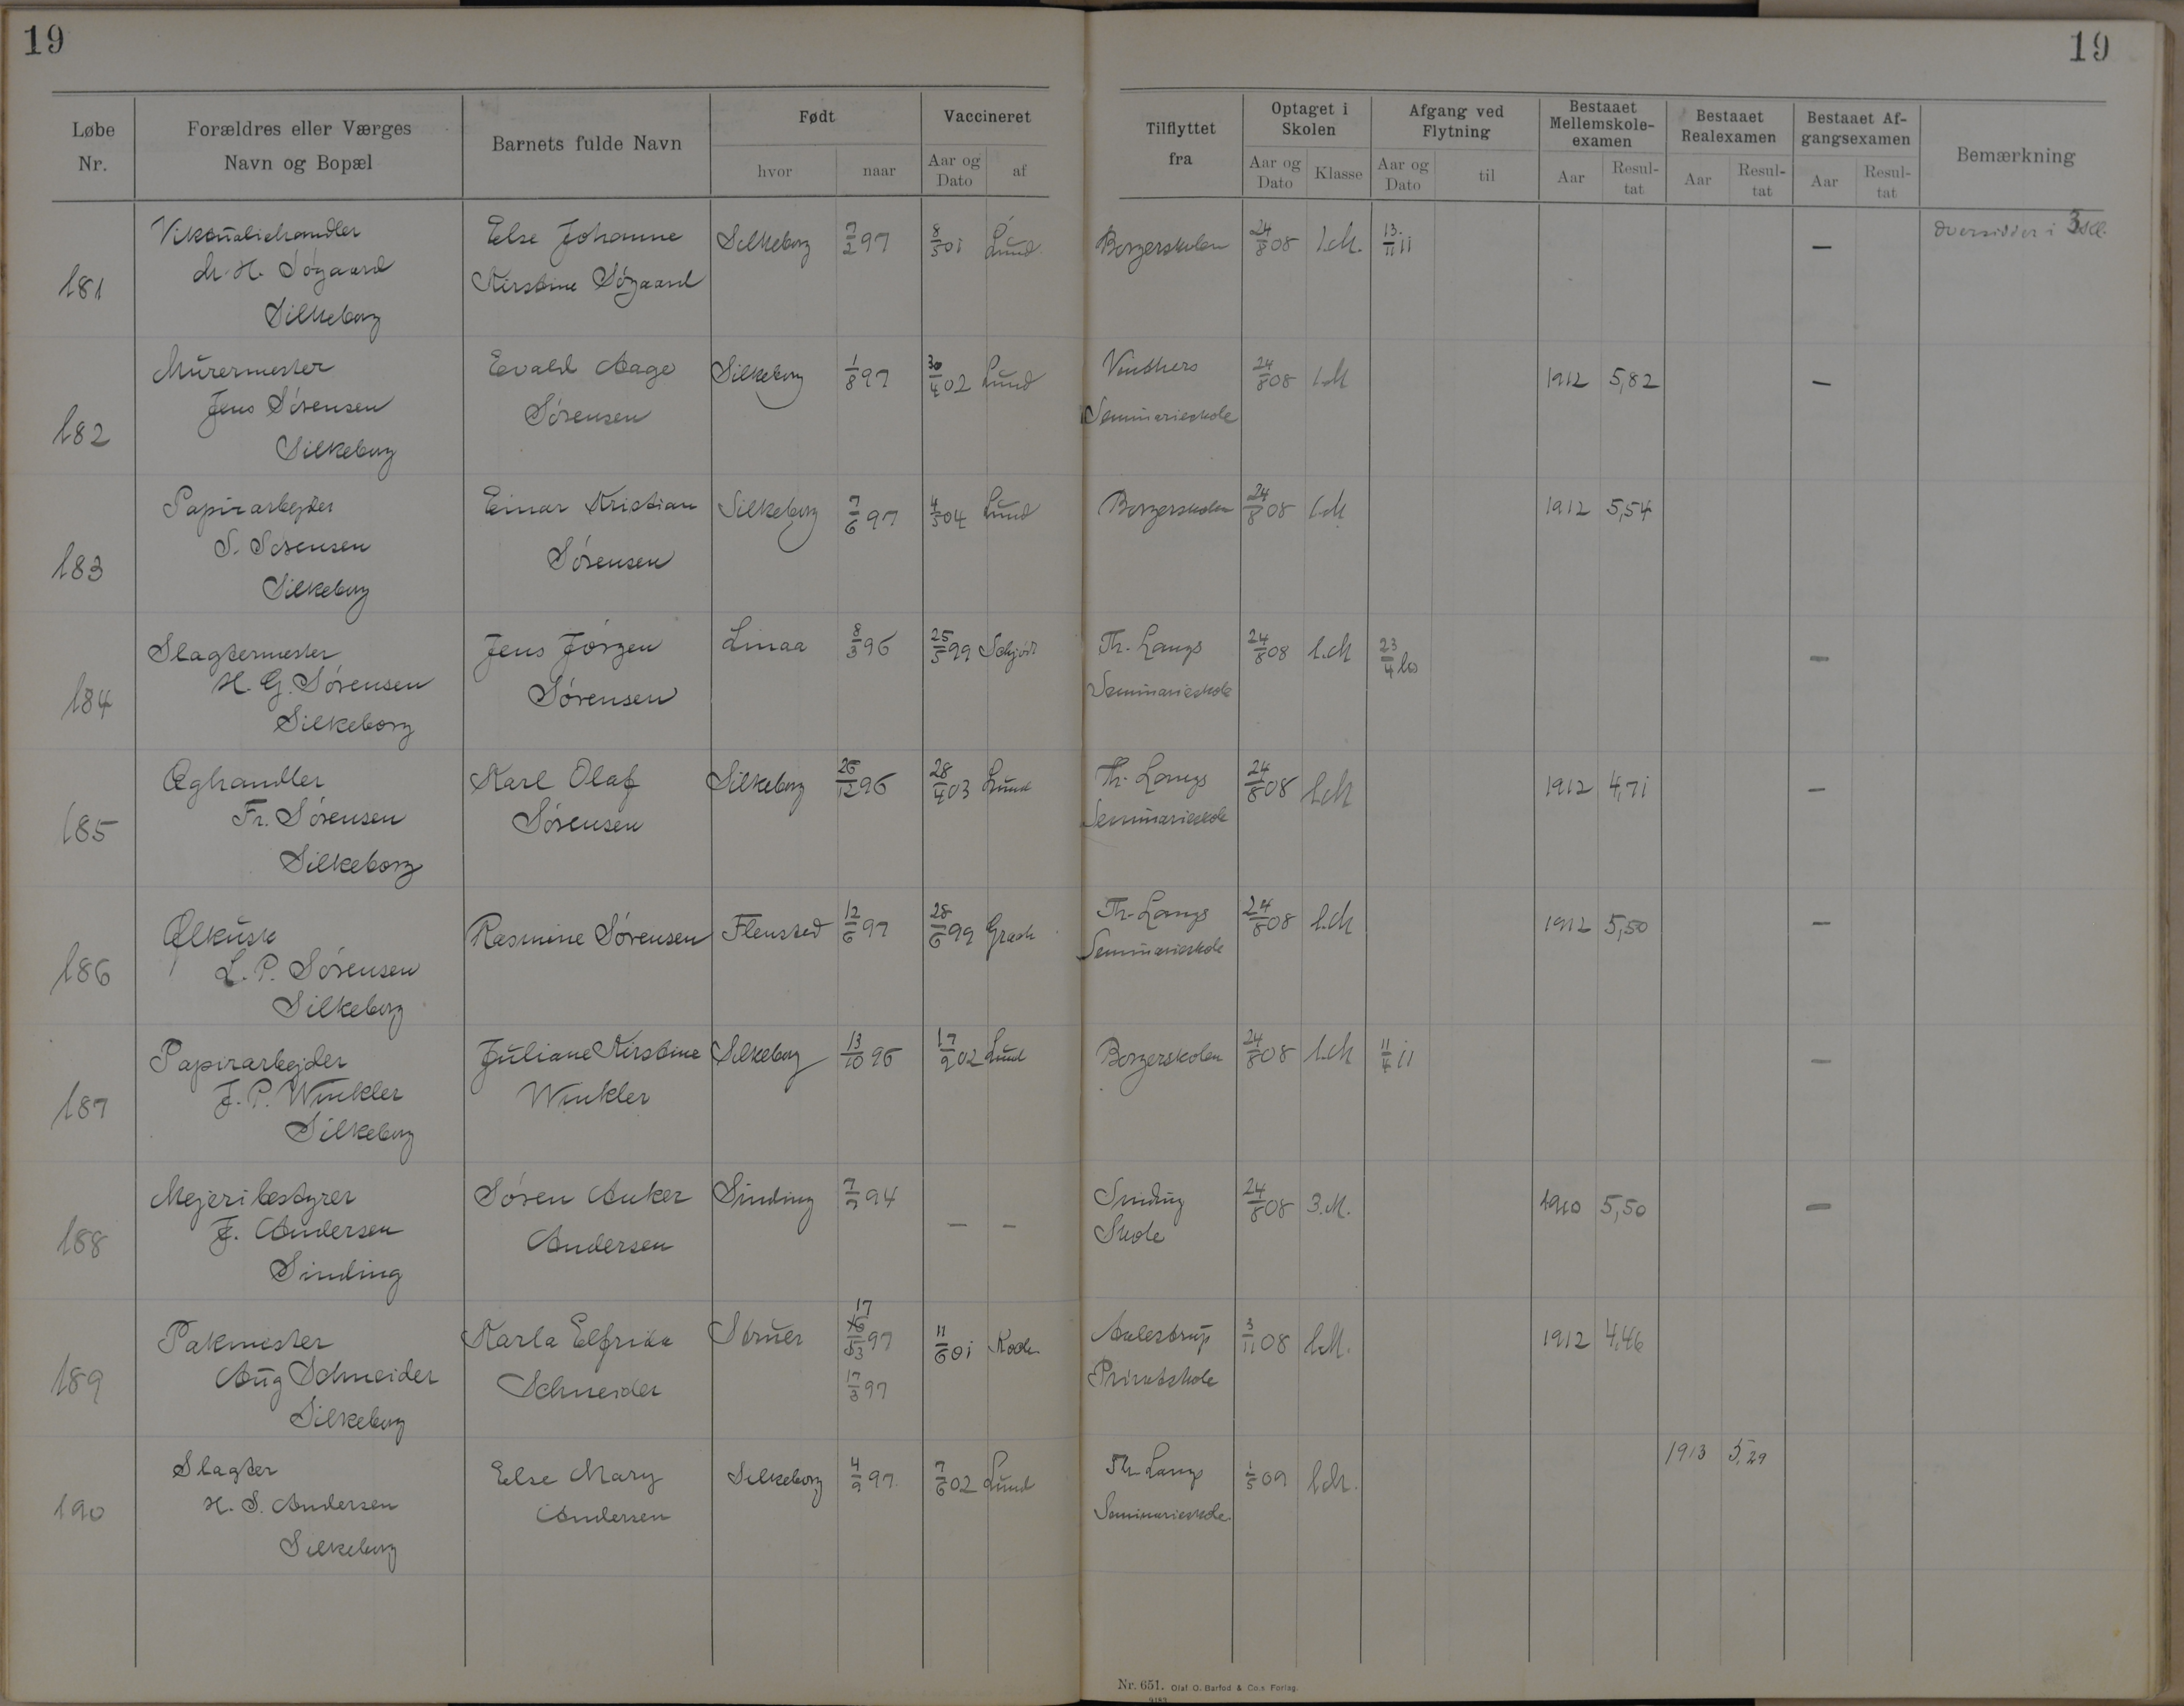 19
19
Løbe Nr.
Forældres eller Værges Navn og Bopæl
Barnets fulde Navn
Født
hvor
naar
Vaccineret
Aar og Dato
af
Tilflyttet fra
Optaget i Skolen
Aar og Dato
Klasse
Afgang ved Flytning
Aar og Dato
til
Bestaaet Mellemskole-examen
Aar
Resul-tat
Bestaaet Realexamen
Aar
Resul-tat
Bestaaet Af-gangsexamen
Aar
Resul-tat
Bemærkning
181 Viktualiehandler Else Johanne Silkeborg 7/2 97 8/5 01 Lund Borgerskolen 24/8 08 1.M. 13./11 11 — Oversidder i 3die Kl.
M. H. Søgaard Kirstine Søgaard
Silkeborg
182 Murermester Evald Aage Silkeborg 1/8 97 30/4 02 Lund Vinthers 24/8 08 1.M 1912 5,82 —
Jens Sørensen Sørensen Seminarieskole
Silkeborg
183 Papirarbejder Einar Kristian Silkeborg 7/6 97 4/5 04 Lund Borgerskolen 24/8 08 1.M 1912 5,54
S. Sørensen Sørensen
Silkeborg
184 Slagtermester Jens Jørgen Linaa 8/3 96 25/5 99 Schjødt Th. Langs 24/8 08 1.M 23/4 10 —
H. G. Sørensen Sørensen Seminarieskole
Silkeborg
185 Æghandler Karl Olaf Silkeborg 26/12 96 28/4 03 Lund Th. Langs 24/8 08 1.M 1912 4,71 —
Fr. Sørensen Sørensen Seminarieskole
Silkeborg
186 Ølkusk Rasmine Sørensen Flensted 12/6 97 28/6 99 Th. Langs 24/8 08 1.M 1912 5,50 —
L. P. Sørensen Seminarieskole
Silkeborg
187 Papirarbejder Juliane Kirstine Silkeborg 13/10 96 17/9 02 Lund Borgerskolen 24/8 08 1.M 11/4 11 —
J. P. Winkler Winkler
Silkeborg
188 Mejeribestyrer Søren Anker Sinding 7/7 94 — — Sinding 24/8 08 3.M. 1910 5,50 —
J. Andersen Andersen Skole
Sinding
189 Pakmester Karla Elfrida Struer 17/3 97 11/6 01 Koch Aalestrup 3/11 08 1.M. 1912 4,46
Aug Schneider Schneider 17/3 97 Privatskole
Silkeborg
190 Slagter Else Mary Silkeborg 4/9 97. 7/6 02 Lund Th Langs 1/5 09 1.M. 1913 5,29
H. S. Andersen Andersen Seminarieskole.
Silkeborg
Nr. 651. Olaf O. Barfod & Co.s Forlag.